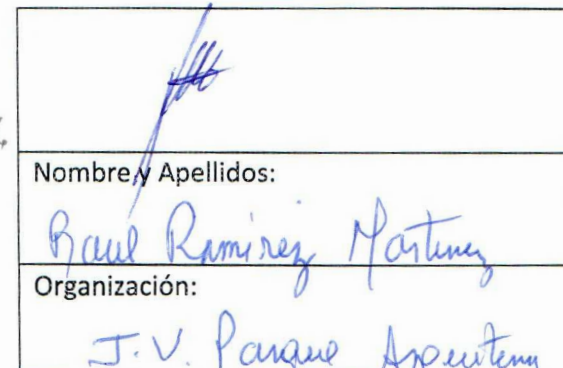 Nombre y Apellidos:
Raul Ramirez Martinez
Organización:
J.V. Parque